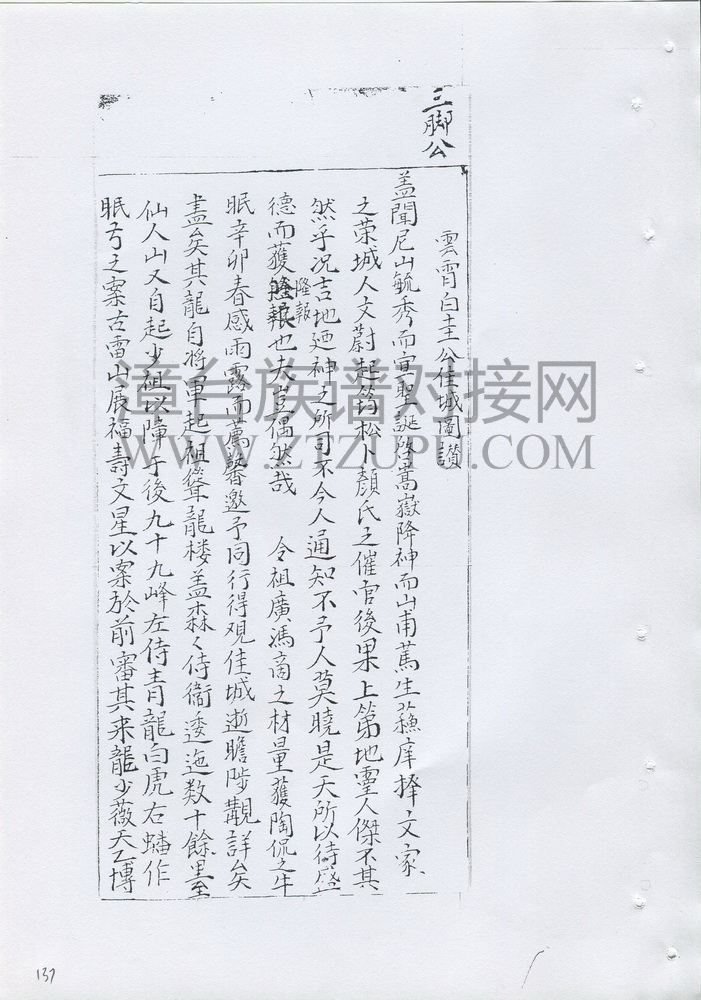 三脚公
雲霄白圭公佳城圖讃
蓋聞尼山毓秀而宣聖誕啓嵩嶽降神而山甫篤生蘓庠擇文家
之荣城人文蔚起筠松卜顏氏之催官後果上第地靈人傑不其
然乎况吉地廼神之所司不令人通知不予人莫曉是天所以待盛
德而獲隆報也夫豈偶然哉 令祖廣馮商之材量獲陶侃之牛
隆報
眠辛卯春感雨露而薦馨邀予同行得观佳城逝瞻陟觀詳矣
盡矣其龍自將軍起祖聳龍楼盖森々侍衞逶迤数十餘里至
仙人山又自起少祖以障于後九十九峰左侍青龍白虎右蟠作
眠弓之案古雷山展福壽文星以案於前審其来龍少薇天乙博
漳台族谱对接网
WWW.ZTZUPU.COM
137